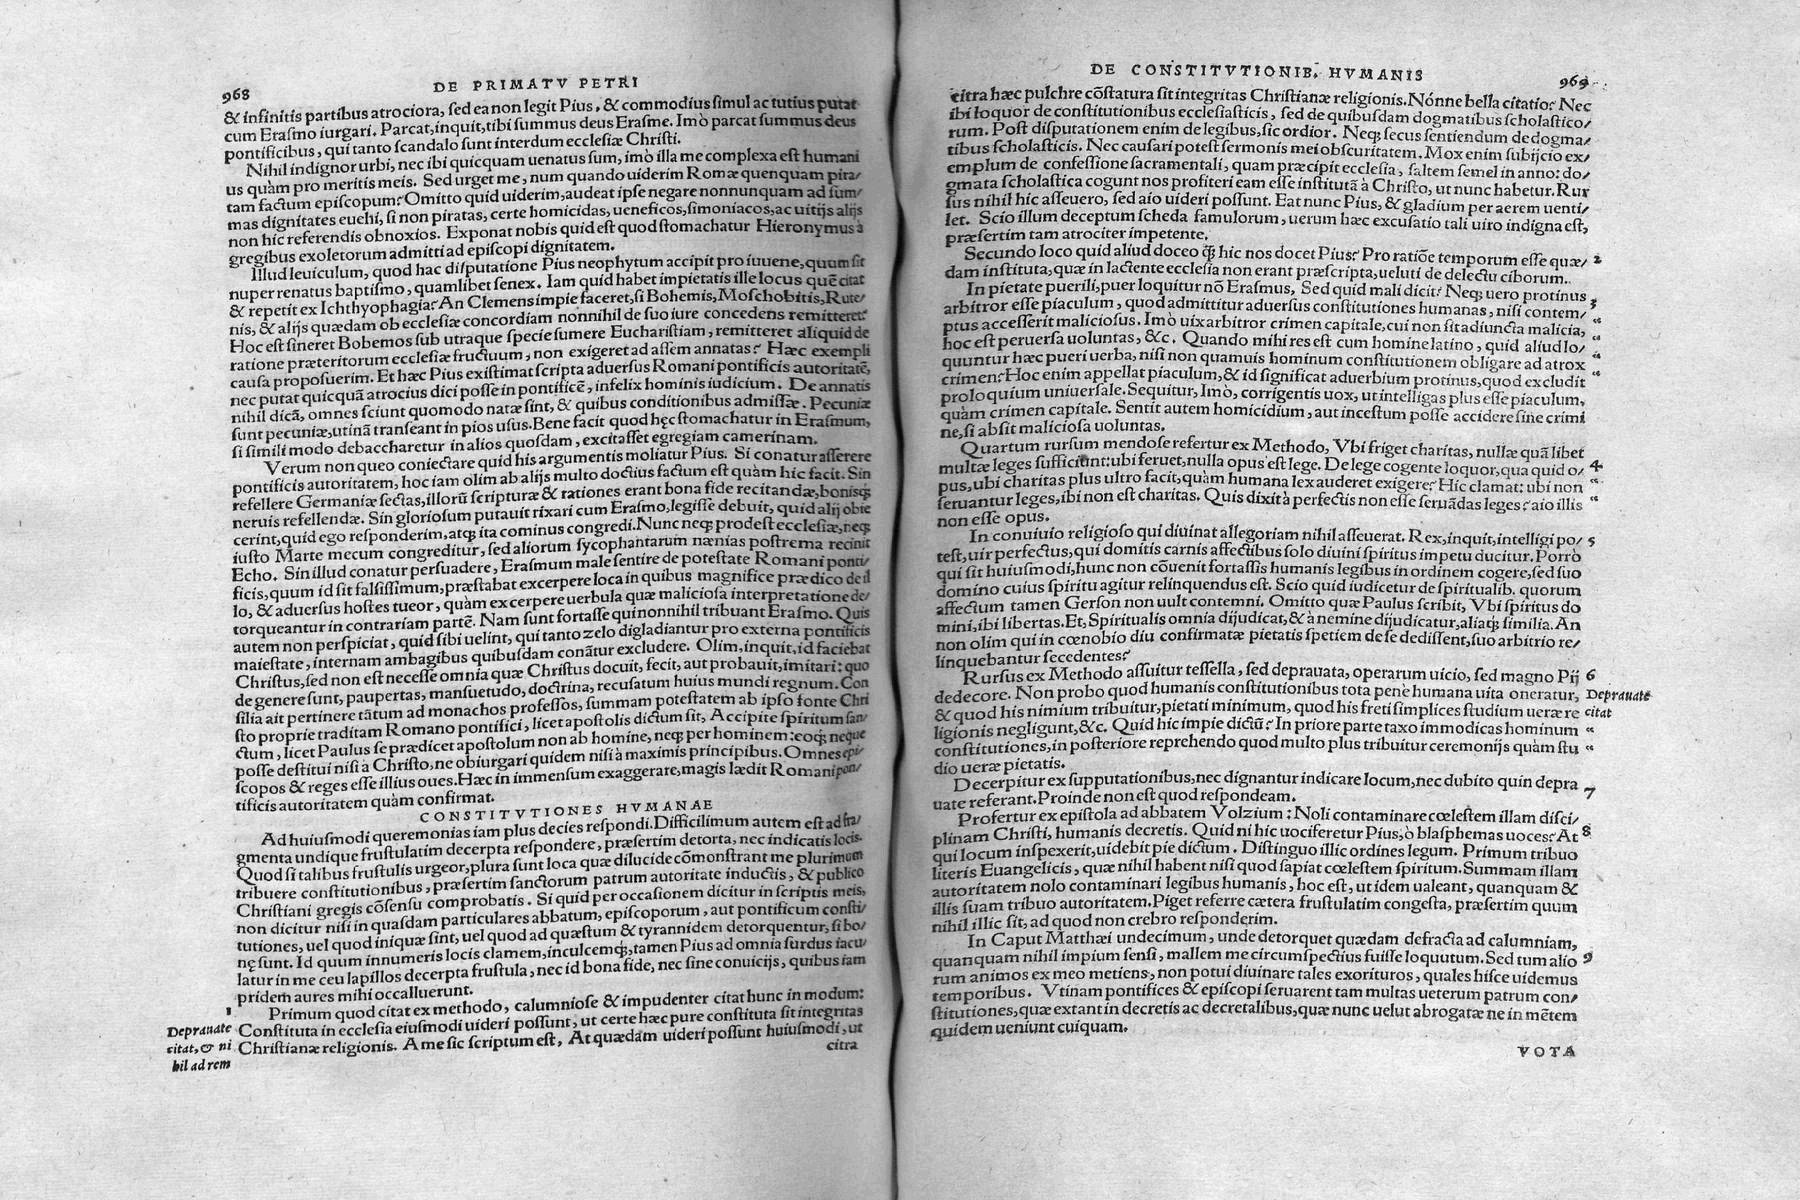 968 DE PRIMATV PETRI
& infinitis partibus atrociora, sed ea non legit Pius, & commodius simul ac tutius putat
cum Erasmo iurgari. Parcat, inquit, tibi summus deus Erasme. Imò parcat summus deus
pontificibus, qui tanto scandalo sunt interdum ecclesiæ Christi.
Nihil indignor urbi, nec ibi quicquam uenatus sum, imò illa me complexa est humani
us quàm pro meritis meis. Sed urget me, num quando uiderim Romæ quenquam pira/
tam factum episcopum? Omitto quid uiderim, audeat ipse negare nonnunquam ad sum/
mas dignitates euehi, si non piratas, certe homicidas, ueneficos, simoniacos, ac uitijs alijs
non hic referendis obnoxios. Exponat nobis quid est quod stomachatur Hieronymus à
gregibus exoletorum admitti ad episcopi dignitatem.
Illud leuiculum, quod hac disputatione Pius neophytum accipit pro iuuene, quum sit
nuper renatus baptismo, quamlibet senex. Iam quid habet impietatis ille locus quē citat
& repetit ex Ichthyophagia? An Clemens impie faceret, si Bohemis, Moschobitis, Rute/
nis, & alijs quædam ob ecclesiæ concordiam nonnihil de suo iure concedens remitteret?
Hoc est sineret Bohemos sub utraque specie sumere Eucharistiam, remitteret aliquid de
ratione præteritorum ecclesiæ fructuum, non exigeret ad assem annatas? Hæc exempli
causa proposuerim. Et hæc Pius existimat scripta aduersus Romani pontificis autoritatē,
nec putat quicquā atrocius dici posse in pontificē, infelix hominis iudicium. De annatis
nihil dicā, omnes sciunt quomodo natæ sint, & quibus conditionibus admissæ. Pecuniæ
sunt pecuniæ, utinā transeant in pios usus. Bene facit quod hęc stomachatur in Erasmum,
si simili modo debaccharetur in alios quosdam, excitasset egregiam camerinam.
Verum non queo coniectare quid his argumentis moliatur Pius. Si conatur asserere
pontificis autoritatem, hoc iam olim ab alijs multo doctius factum est quàm hic facit. Sin
refellere Germaniæ sectas, illorū scripturæ & rationes erant bona fide recitandæ, bonisq́;
neruis refellendæ. Sin gloriosum putauit rixari cum Erasmo, legisse debuit, quid alij obie
cerint, quid ego responderim, atq; ita cominus congredi. Nunc neq; prodest ecclesiæ, neq;
iusto Marte mecum congreditur, sed aliorum sycophantarum nænias postrema recinit
Echo. Sin illud conatur persuadere, Erasmum male sentire de potestate Romani ponti/
ficis, quum id sit falsissimum, præstabat excerpere loca in quibus magnifice prædico de il
lo, & aduersus hostes tueor, quàm excerpere uerbula quæ maliciosa interpretatione de/
torqueantur in contrariam partē. Nam sunt fortasse qui nonnihil tribuant Erasmo. Quis
autem non perspiciat, quid sibi uelint, qui tanto zelo digladiantur pro externa pontificis
maiestate, internam ambagibus quibusdam conātur excludere. Olim, inquit, id faciebat
Christus, sed non est necesse omnia quæ Christus docuit, fecit, aut probauit, imitari: quo
de genere sunt, paupertas, mansuetudo, doctrina, recusatum huius mundi regnum. Con
silia ait pertinere tātum ad monachos professos, summam potestatem ab ipso fonte Chri
sto proprie traditam Romano pontifici, licet apostolis dictum sit, Accipite spiritum san/
ctum, licet Paulus se prædicet apostolum non ab homine, neq; per hominem: eoq; neque
posse destitui nisi à Christo, ne obiurgari quidem nisi à maximis principibus. Omnes epi/
scopos & reges esse illius oues. Hæc in immensum exaggerare, magis lædit Romani pon/
tificis autoritatem quàm confirmat.
CONSTITVTIONES HVMANAE
Ad huiusmodi queremonias iam plus decies respondi. Difficilimum autem est ad fra/
gmenta undique frustulatim decerpta respondere, præsertim detorta, nec indicatis locis.
Quod si talibus frustulis urgeor, plura sunt loca quæ dilucide cōmonstrant me plurimum
tribuere constitutionibus, præsertim sanctorum patrum autoritate inductis, & publico
Christiani gregis cōsensu comprobatis. Si quid per occasionem dicitur in scriptis meis,
non dicitur nisi in quasdam particulares abbatum, episcoporum, aut pontificum consti/
tutiones, uel quod iniquæ sint, uel quod ad quæstum & tyrannidem detorquentur, si bo/
nę sunt. Id quum innumeris locis clamem, inculcemq́;, tamen Pius ad omnia surdus iacu/
latur in me ceu lapillos decerpta frustula, nec id bona fide, nec sine conuicijs, quibus iam
pridem aures mihi occalluerunt.
1 Primum quod citat ex methodo, calumniose & impudenter citat hunc in modum:
Deprauate Constituta in ecclesia eiusmodi uideri possunt, ut certe hæc pure constituta sit integritas
citat, & ni Christianæ religionis. A me sic scriptum est, At quædam uideri possunt huiusmodi, ut
hil ad rem citra
DE CONSTITVTIONIB. HVMANIS 969
citra hæc pulchre cōstatura sit integritas Christianæ religionis. Nónne bella citatio? Nec
ibi loquor de constitutionibus ecclesiasticis, sed de quibusdam dogmatibus scholastico/
rum. Post disputationem enim de legibus, sic ordior. Neq; secus sentiendum de dogma/
tibus scholasticis. Nec causari potest sermonis mei obscuritatem. Mox enim subijcio ex/
emplum de confessione sacramentali, quam præcipit ecclesia, saltem semel in anno: do/
gmata scholastica cogunt nos profiteri eam esse institutā à Christo, ut nunc habetur. Rur
sus nihil hic asseuero, sed aio uideri possunt. Eat nunc Pius, & gladium per aerem uenti/
let. Scio illum deceptum scheda famulorum, uerum hæc excusatio tali uiro indigna est,
præsertim tam atrociter impetente.
Secundo loco quid aliud doceo q̄̈ hic nos docet Pius? Pro ratiōe temporum esse quæ/ 2
dam instituta, quæ in lactente ecclesia non erant præscripta, ueluti de delectu ciborum.
In pietate puerili, puer loquitur nō Erasmus. Sed quid mali dicit? Neq; uero protinus 3
arbitror esse piaculum, quod admittitur aduersus constitutiones humanas, nisi contem/ “
ptus accesserit maliciosus. Imò uix arbitror crimen capitale, cui non sit adiuncta malicia, “
hoc est peruersa uoluntas, &c. Quando mihi res est cum homine latino, quid aliud lo/ “
quuntur hæc pueri uerba, nisi non quamuis hominum constitutionem obligare ad atrox “
crimen? Hoc enim appellat piaculum, & id significat aduerbium protinus, quod excludit “
proloquium uniuersale. Sequitur, Imò, corrigentis uox, ut intelligas plus esse piaculum,
quàm crimen capitale. Sentit autem homicidium, aut incestum posse accidere sine crimi
ne, si absit maliciosa uoluntas.
Quartum rursum mendose refertur ex Methodo, Vbi friget charitas, nullæ quālibet
multæ leges sufficiunt: ubi feruet, nulla opus est lege. De lege cogente loquor, qua quid o/ 4
pus, ubi charitas plus ultro facit, quàm humana lex auderet exigere? Hic clamat: ubi non “
seruantur leges, ibi non est charitas. Quis dixit à perfectis non esse seruādas leges? aio illis “
non esse opus.
In conuiuio religioso qui diuinat allegoriam nihil asseuerat. Rex, inquit, intelligi po/ 5
test, uir perfectus, qui domitis carnis affectibus solo diuini spiritus impetu ducitur. Porrò
qui sit huiusmodi, hunc non cōuenit fortassis humanis legibus in ordinem cogere, sed suo
domino cuius spiritu agitur relinquendus est. Scio quid iudicetur de spiritualib. quorum
affectum tamen Gerson non uult contemni. Omitto quæ Paulus scribit, Vbi spiritus do
mini, ibi libertas. Et, Spiritualis omnia dijudicat, & à nemine dijudicatur, aliaq́; similia. An
non olim qui in cœnobio diu confirmatæ pietatis spetiem de se dedissent, suo arbitrio re/
linquebantur secedentes?
Rursus ex Methodo assuitur tessella, sed deprauata, operarum uicio, sed magno Pij 6
dedecore. Non probo quod humanis constitutionibus tota penè humana uita oneratur, Deprauate
& quod his nimium tribuitur, pietati minimum, quod his freti simplices studium ueræ re citat
ligionis negligunt, &c. Quid hic impie dictū? In priore parte taxo immodicas hominum “
constitutiones, in posteriore reprehendo quod multo plus tribuitur ceremonijs quàm stu “
dio ueræ pietatis.
Decerpitur ex supputationibus, nec dignantur indicare locum, nec dubito quin depra
uate referant. Proinde non est quod respondeam. 7
Profertur ex epistola ad abbatem Volzium: Noli contaminare cœlestem illam disci/
plinam Christi, humanis decretis. Quid ni hic uociferetur Pius, ò blasphemas uoces? At 8
qui locum inspexerit, uidebit pie dictum. Distinguo illic ordines legum. Primum tribuo
literis Euangelicis, quæ nihil habent nisi quod sapiat cœlestem spiritum. Summam illam
autoritatem nolo contaminari legibus humanis, hoc est, ut idem ualeant, quanquam &
illis suam tribuo autoritatem. Piget referre cætera frustulatim congesta, præsertim quum
nihil illic sit, ad quod non crebro responderim.
In Caput Matthæi undecimum, unde detorquet quædam defracta ad calumniam,
quanquam nihil impium sensi, mallem me circumspectius fuisse loquutum. Sed tum alio 9
rum animos ex meo metiens, non potui diuinare tales exorituros, quales hisce uidemus
temporibus. Vtinam pontifices & episcopi seruarent tam multas ueterum patrum con/
stitutiones, quæ extant in decretis ac decretalibus, quæ nunc uelut abrogatæ ne in mētem
quidem ueniunt cuiquam.
VOTA